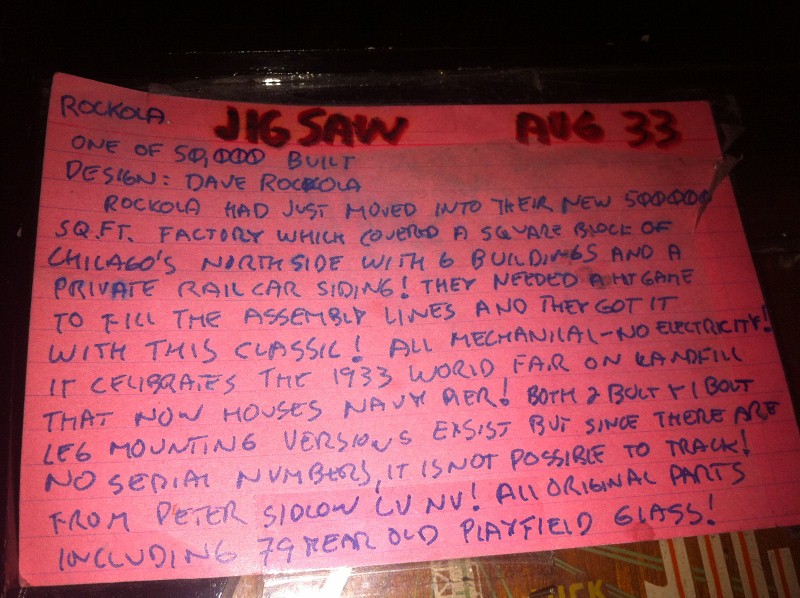 ROCKOLA JIGSAW AUG 33
ONE OF 50,000 BUILT
DESIGN: DAVE ROCKOLA
ROCKOLA HAD JUST MOVED INTO THEIR NEW 500000
SQ.FT. FACTORY WHICH COVERED A SQUARE BLOCK OF
CHICAGO'S NORTHSIDE WITH 6 BUILDINGS AND A
PRIVATE RAILCAR SIDING! THEY NEEDED A HIT GAME
TO FILL THE ASSEMBLY LINES AND THEY GOT IT
WITH THIS CLASSIC! ALL MECHANICAL-NO ELECTRICITY!
IT CELIBRATES THE 1933 WORLD FAIR ON LANDFILL
THAT NOW HOUSES NAVY PIER! BOTH 2 BOLT & 1 BOLT
LEG MOUNTING VERSIONS EXSIST BUT SINCE THERE ARE
NO SERIAL NUMBERS, IT IS NOT POSSIBLE TO TRACK!
FROM PETER SIDLOW LV NV! ALL ORIGINAL PARTS
INCLUDING 79 YEAR OLD PLAYFIELD GLASS!